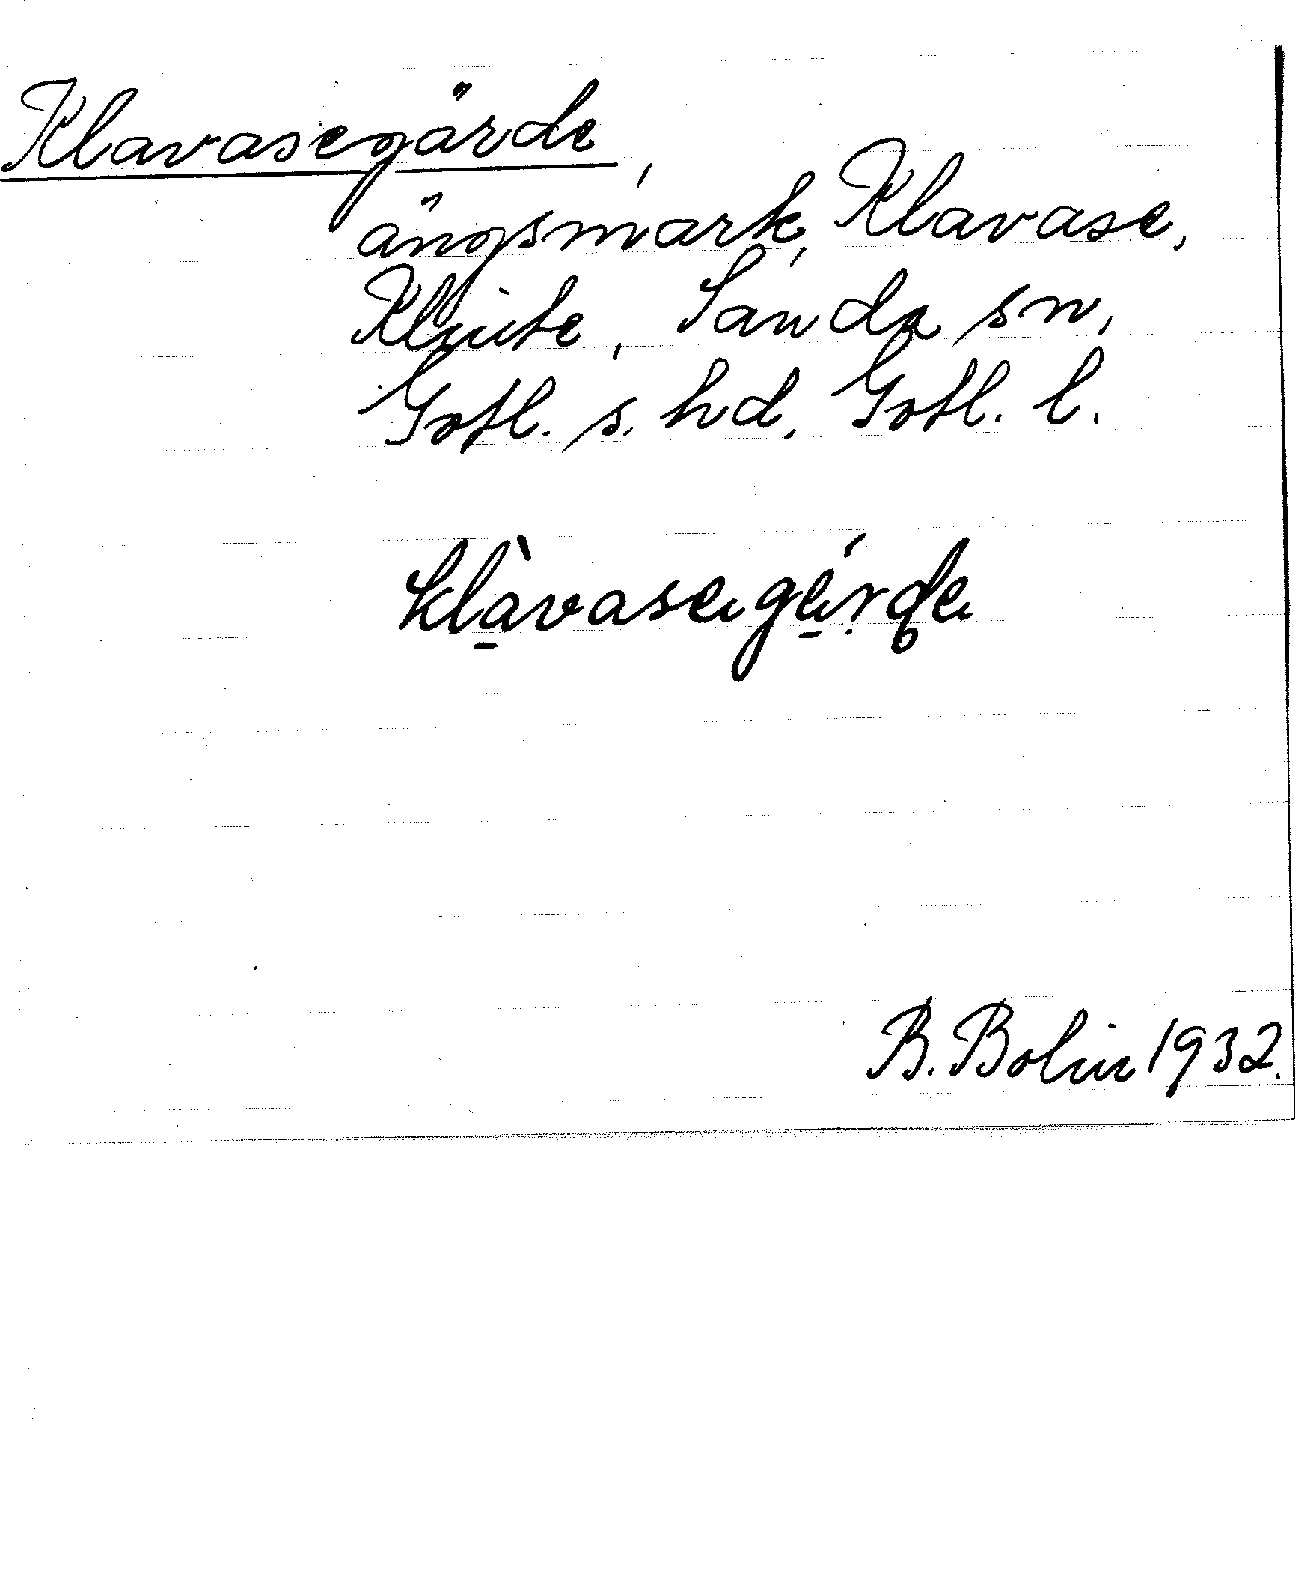 Klavasegärde,
ängsmark, Klavase,
Klinte, Sanda sn,
Gotl. s. hd, Gotl. l.
klàvasegérde
B. Bolin 1932.